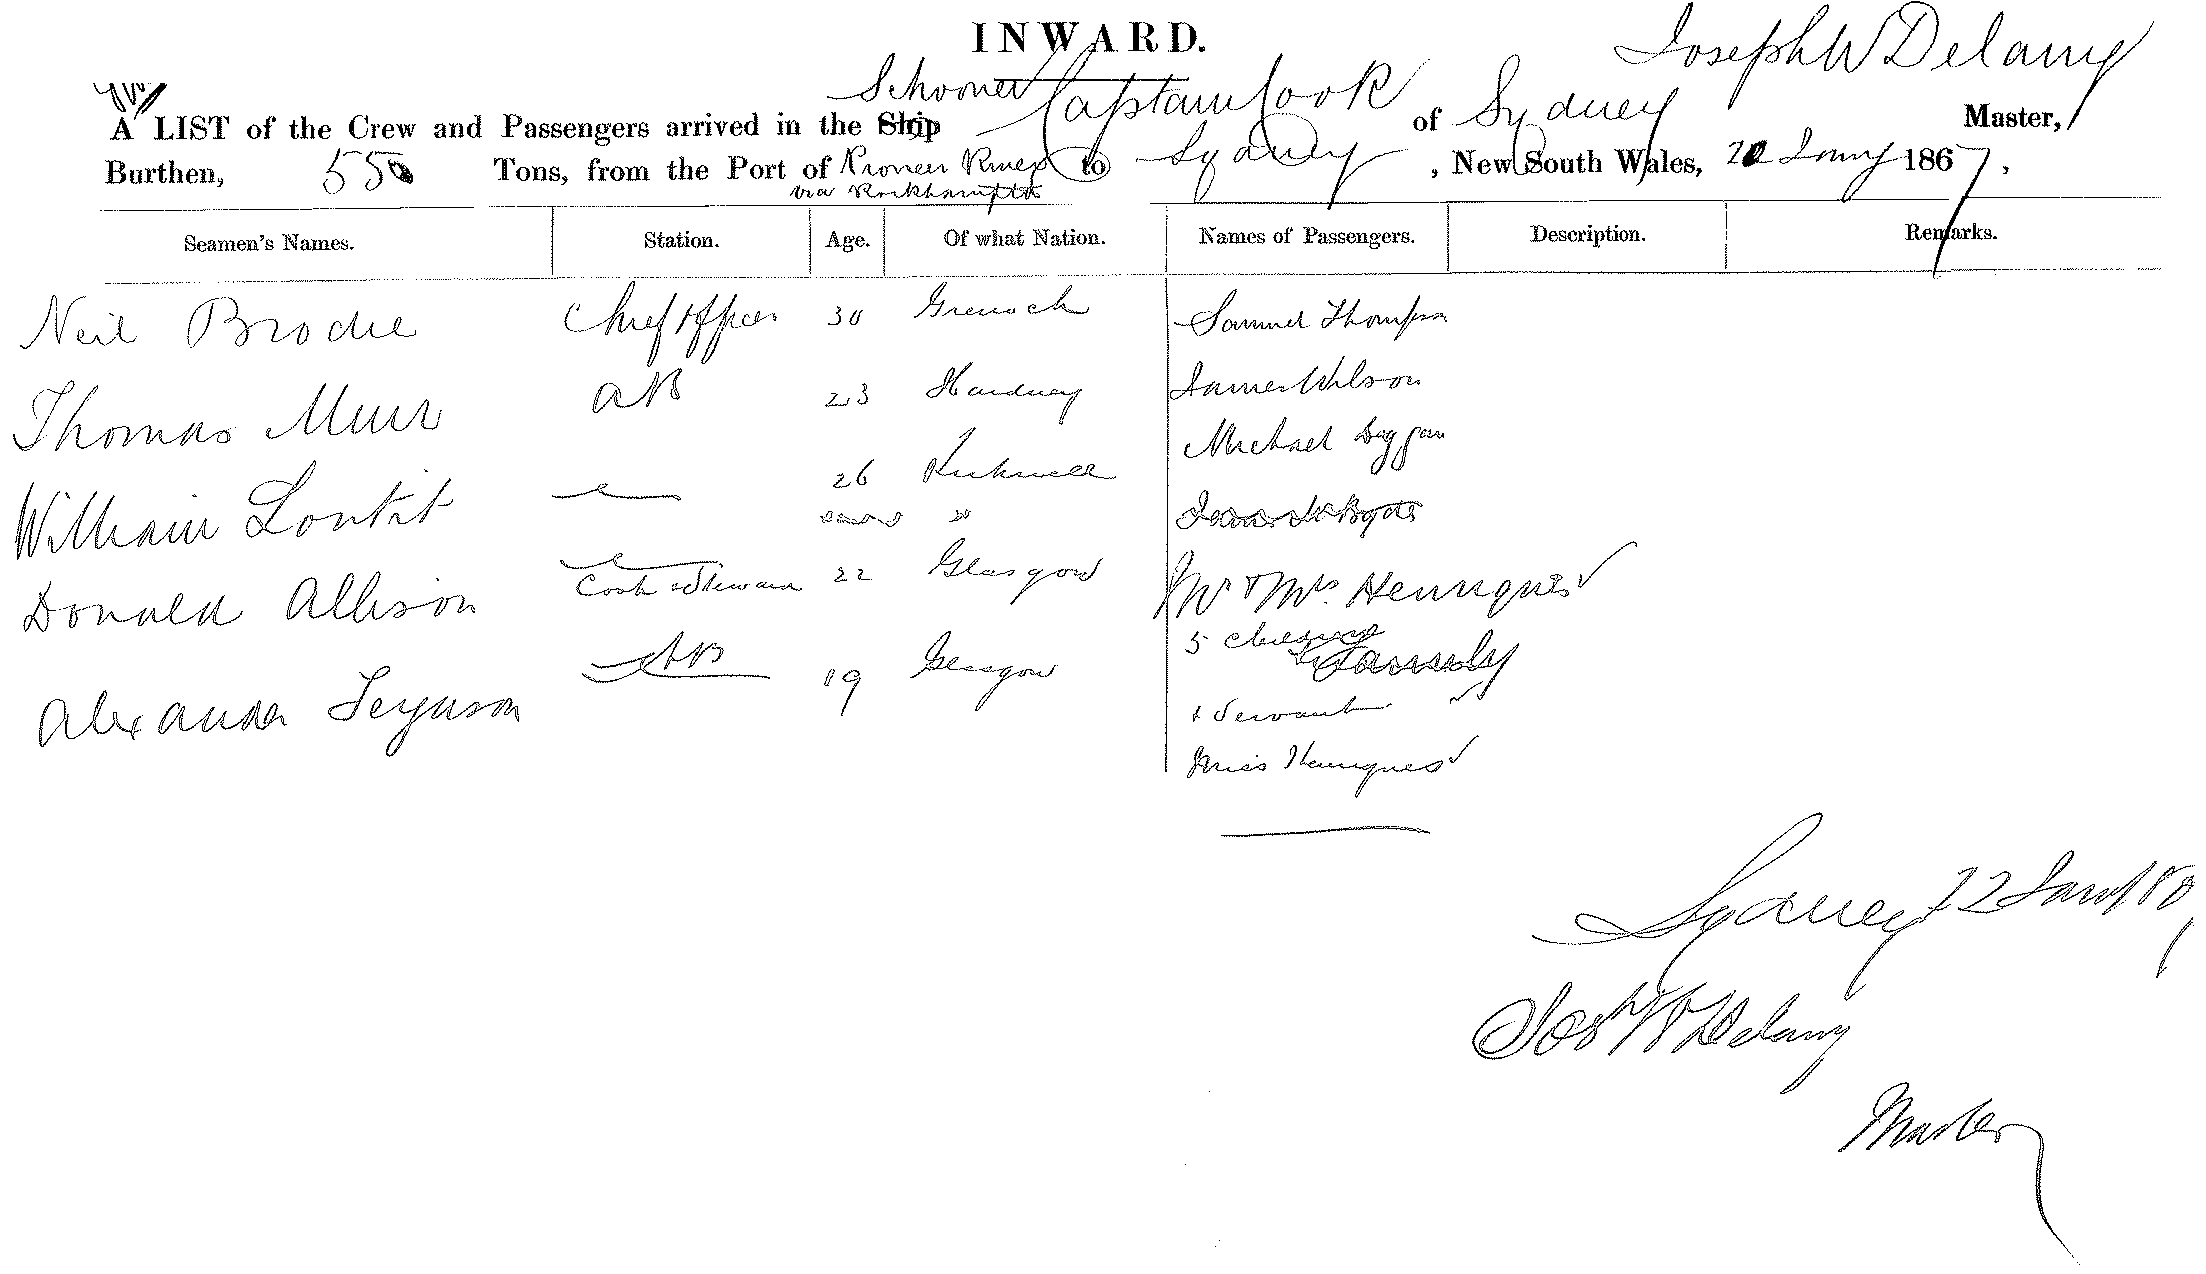 INWARD.
Joseph W Delany
Schooner Captain Cook
A LIST of the Crew and Passengers arrived in the Ship of Sydney Master,
Burthen, 55 Tons, from the Port of Pioneer River to Sydney, New South Wales, Jany 1867,
via Rockhampton
Seamen's Names. Station. Age. Of what Nation. Names of Passengers. Description. Remarks.
Neil Brodie Chief Officer 30 Grenock Samuel Thompson
Thomas Muir AB 23 James Wilson
William Loutit 26 Kirkwall Michael Duggan
"
Donald Allison Cook & Steward 22 Glasgow Mr & Mrs. Henriques
5 children
Family
Alexander Ferguson AB 19 Glasgow & Servant
Miss Henriques
Sydney 22 Jany
Jos W Delany
Master